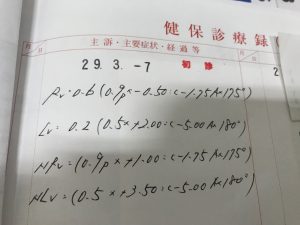 健保診療録
月 日
主訴・主要症状・経過等
月 日
29.3.-7 初診 2
Rv=0.6(0.9p×-0.50:c-1.75Ax175°)
Lv=0.2(0.5×+2.00:c-5.00Ax180°)
NRv=(0.9p×+1.00:c-1.75Ax175°)
NLv=(0.5×+3.50:c-5.00Ax180°)